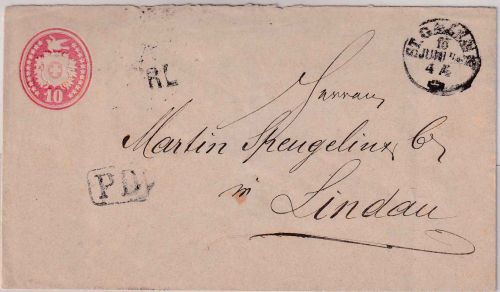 10
RL
ST. GALLEN
16
JUNI
4
Herren
Martin Spengelin & Co
P.D.
in
Lindau